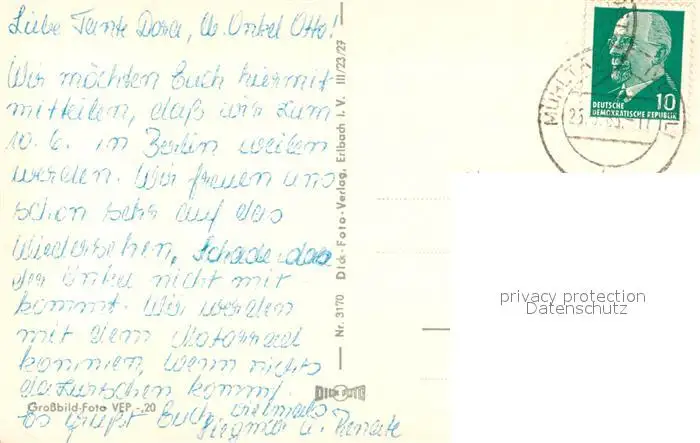 Liebe Tante Dora, lb. Onkel Otto!
Wir möchten Euch hiermit
mitteilen, daß wir zum
10. 6. in Berlin weilen
werden. Wir freuen uns
schon sehr auf das
Wiedersehen, Schade das
der Onkel nicht mit
kommt. Wir werden
mit dem Motorrad
kommen, wenn nichts
dazwischen kommt.
Es grüßt Euch vielmals
Siegmar u. Renate
Großbild-Foto VEP -,20
Nr. 3170 Dick-Foto-Verlag, Erlbach i. V. III/23/27
DICK FOTO
10
DEUTSCHE
DEMOKRATISCHE REPUBLIK
privacy protection
Datenschutz